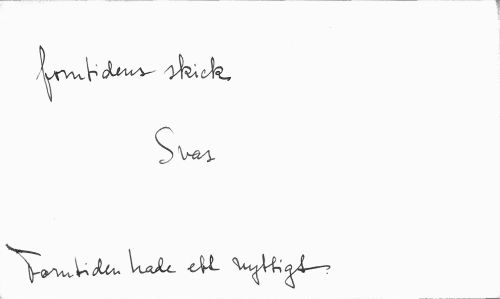 forntidens skick
Svas
Forntiden hade ett nyttigt